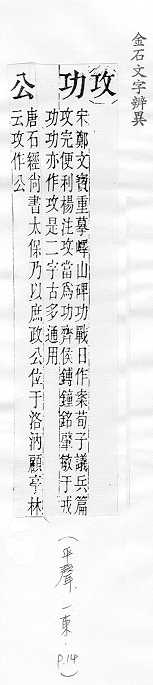 金石文字辨異
攻
功 宋鄭文寶重摹嶧山碑功戰日作案荀子議兵篇
攻完便利楊注攻當爲功齊侯鎛鐘銘肇敏于戎
功功亦作攻是二字古多通用
公 唐石經尚書太保乃以庶政公位于洛汭顧亭林
云攻作公
(平聲.一東.P.14)